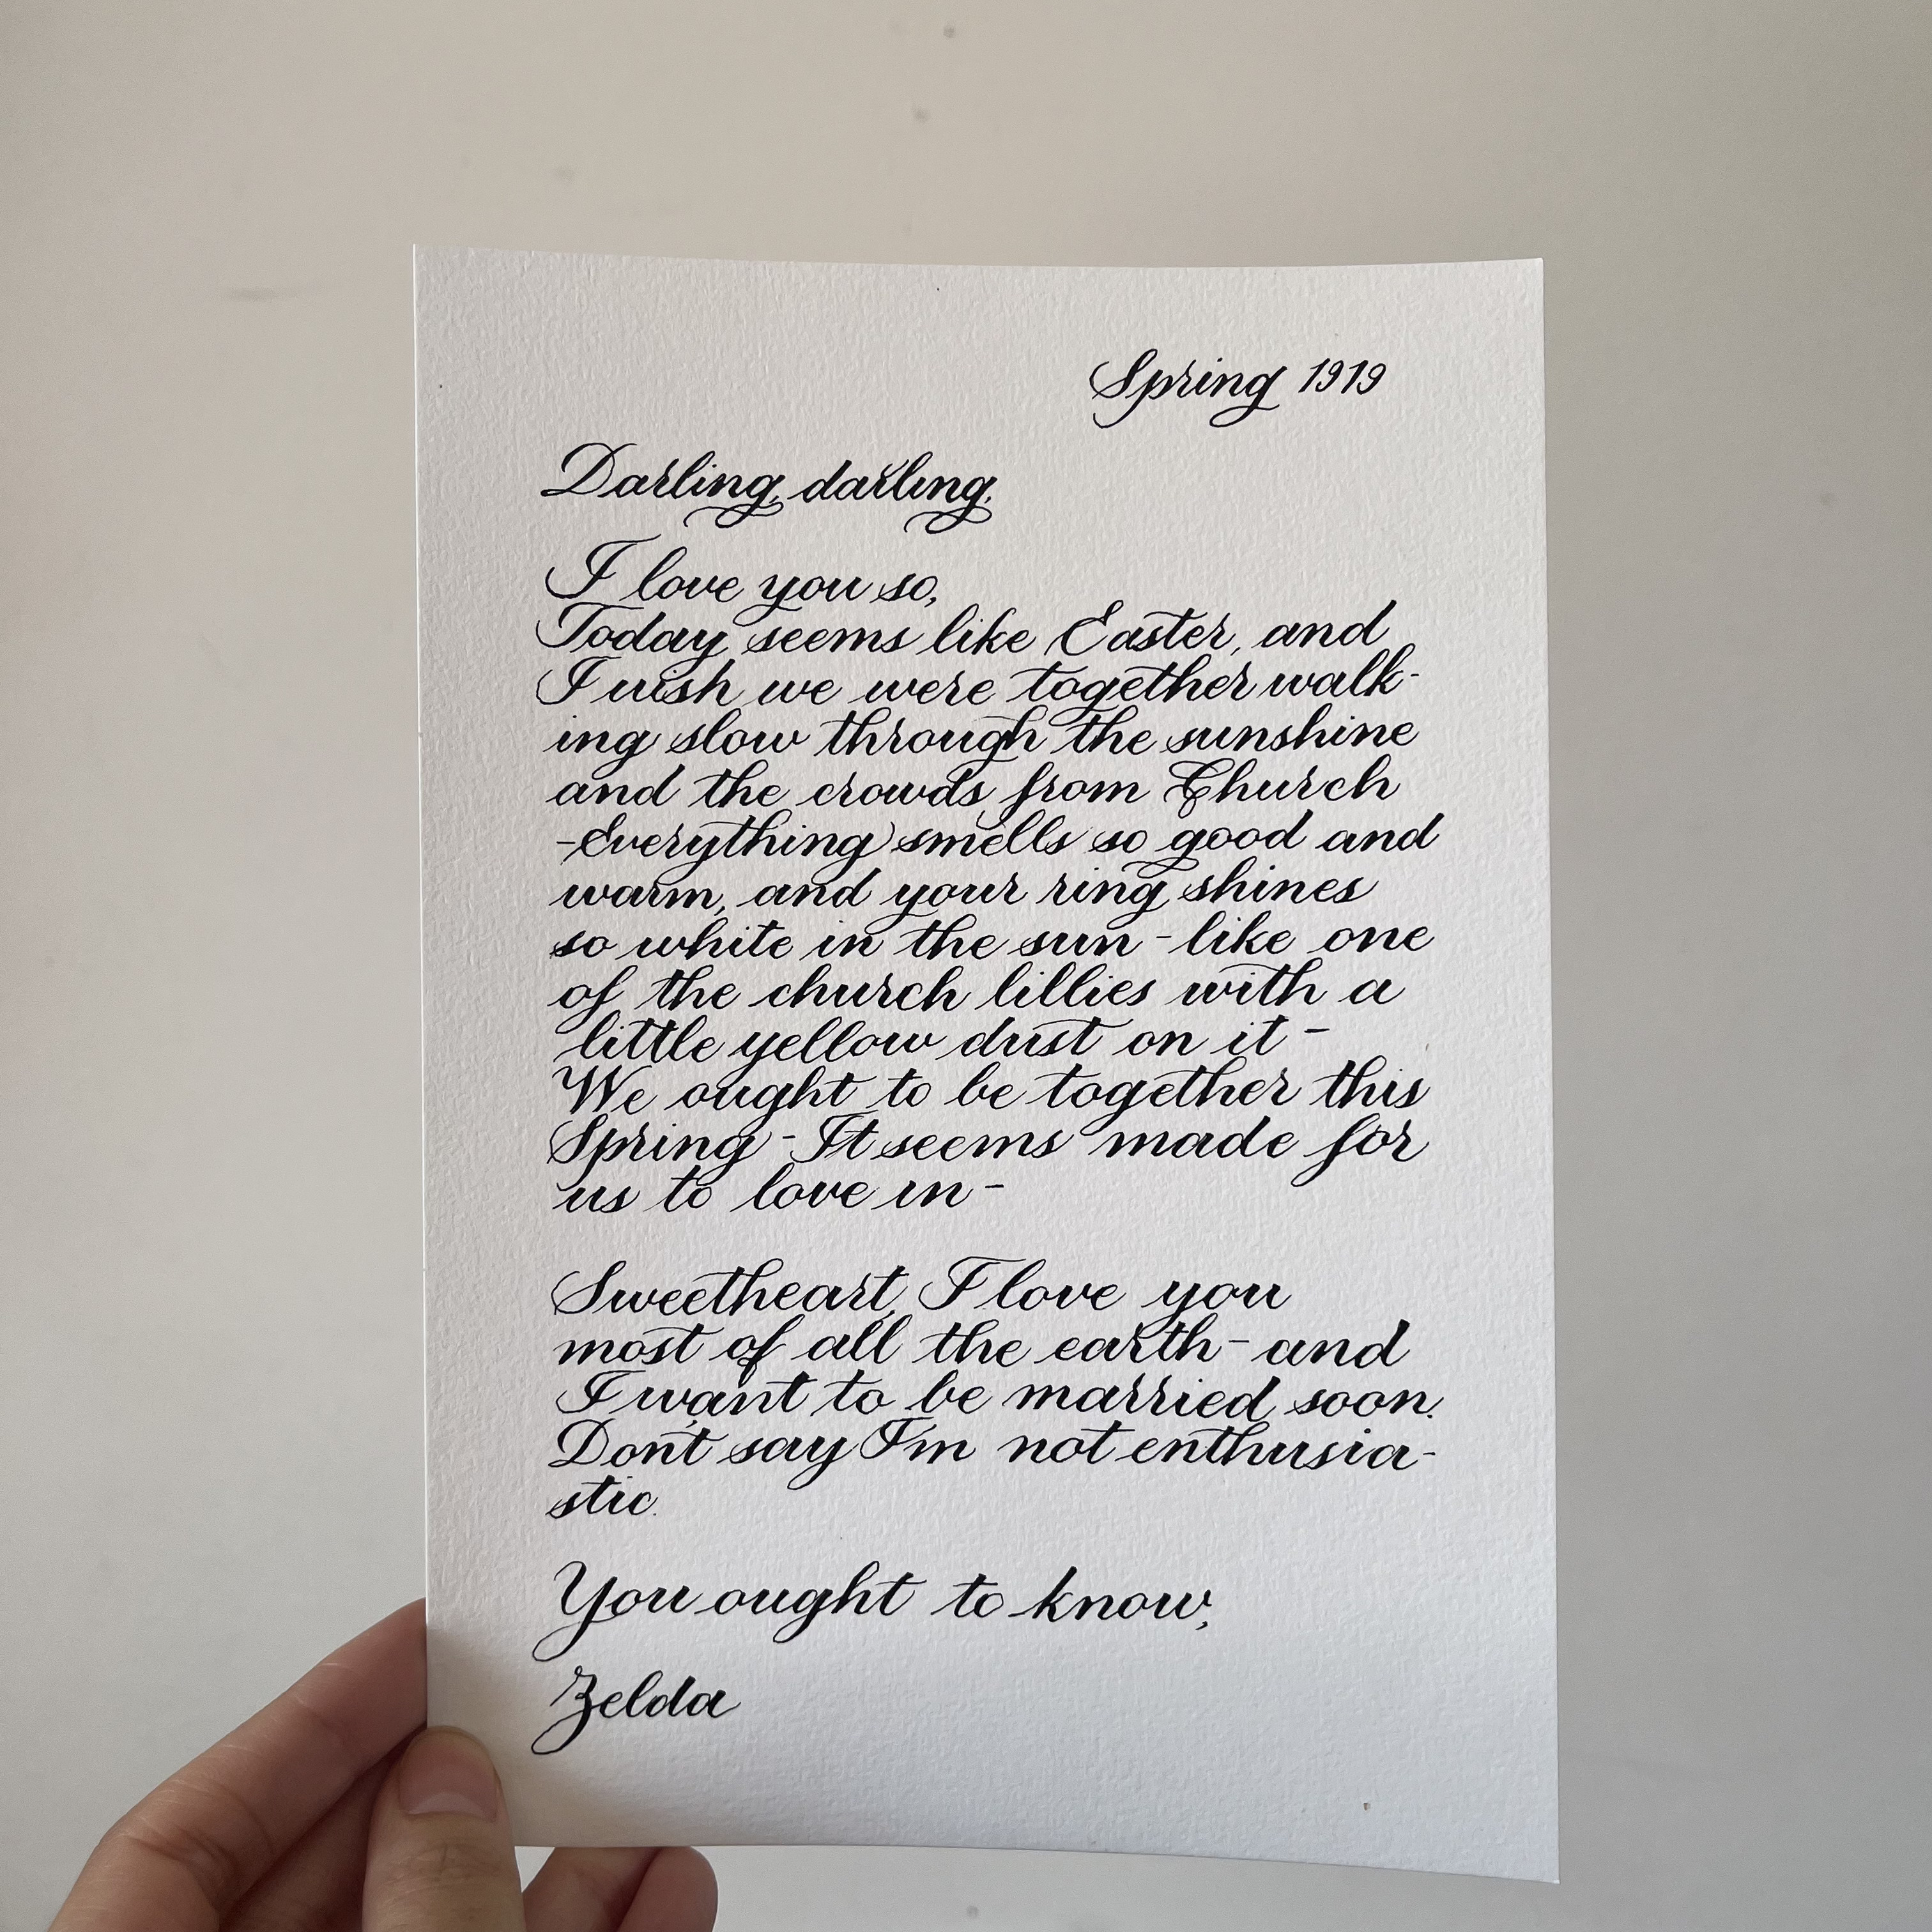 Spring 1919
Darling, darling,
I love you so,
Today seems like Easter, and
I wish we were together walk-
ing slow through the sunshine
and the crowds from Church
-Everything smells so good and
warm, and your ring shines
so white in the sun - like one
of the church lillies with a
little yellow dust on it -
We ought to be together this
Spring - It seems made for
us to love in -
Sweetheart, I love you
most of all the earth - and
I want to be married soon.
Don't say I'm not enthusia-
stic.
You ought to know,
Zelda